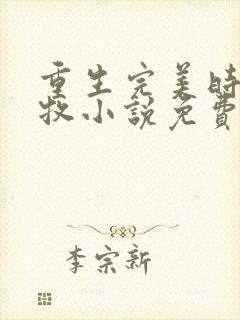 重生完美時
牧小說免費
李宗新